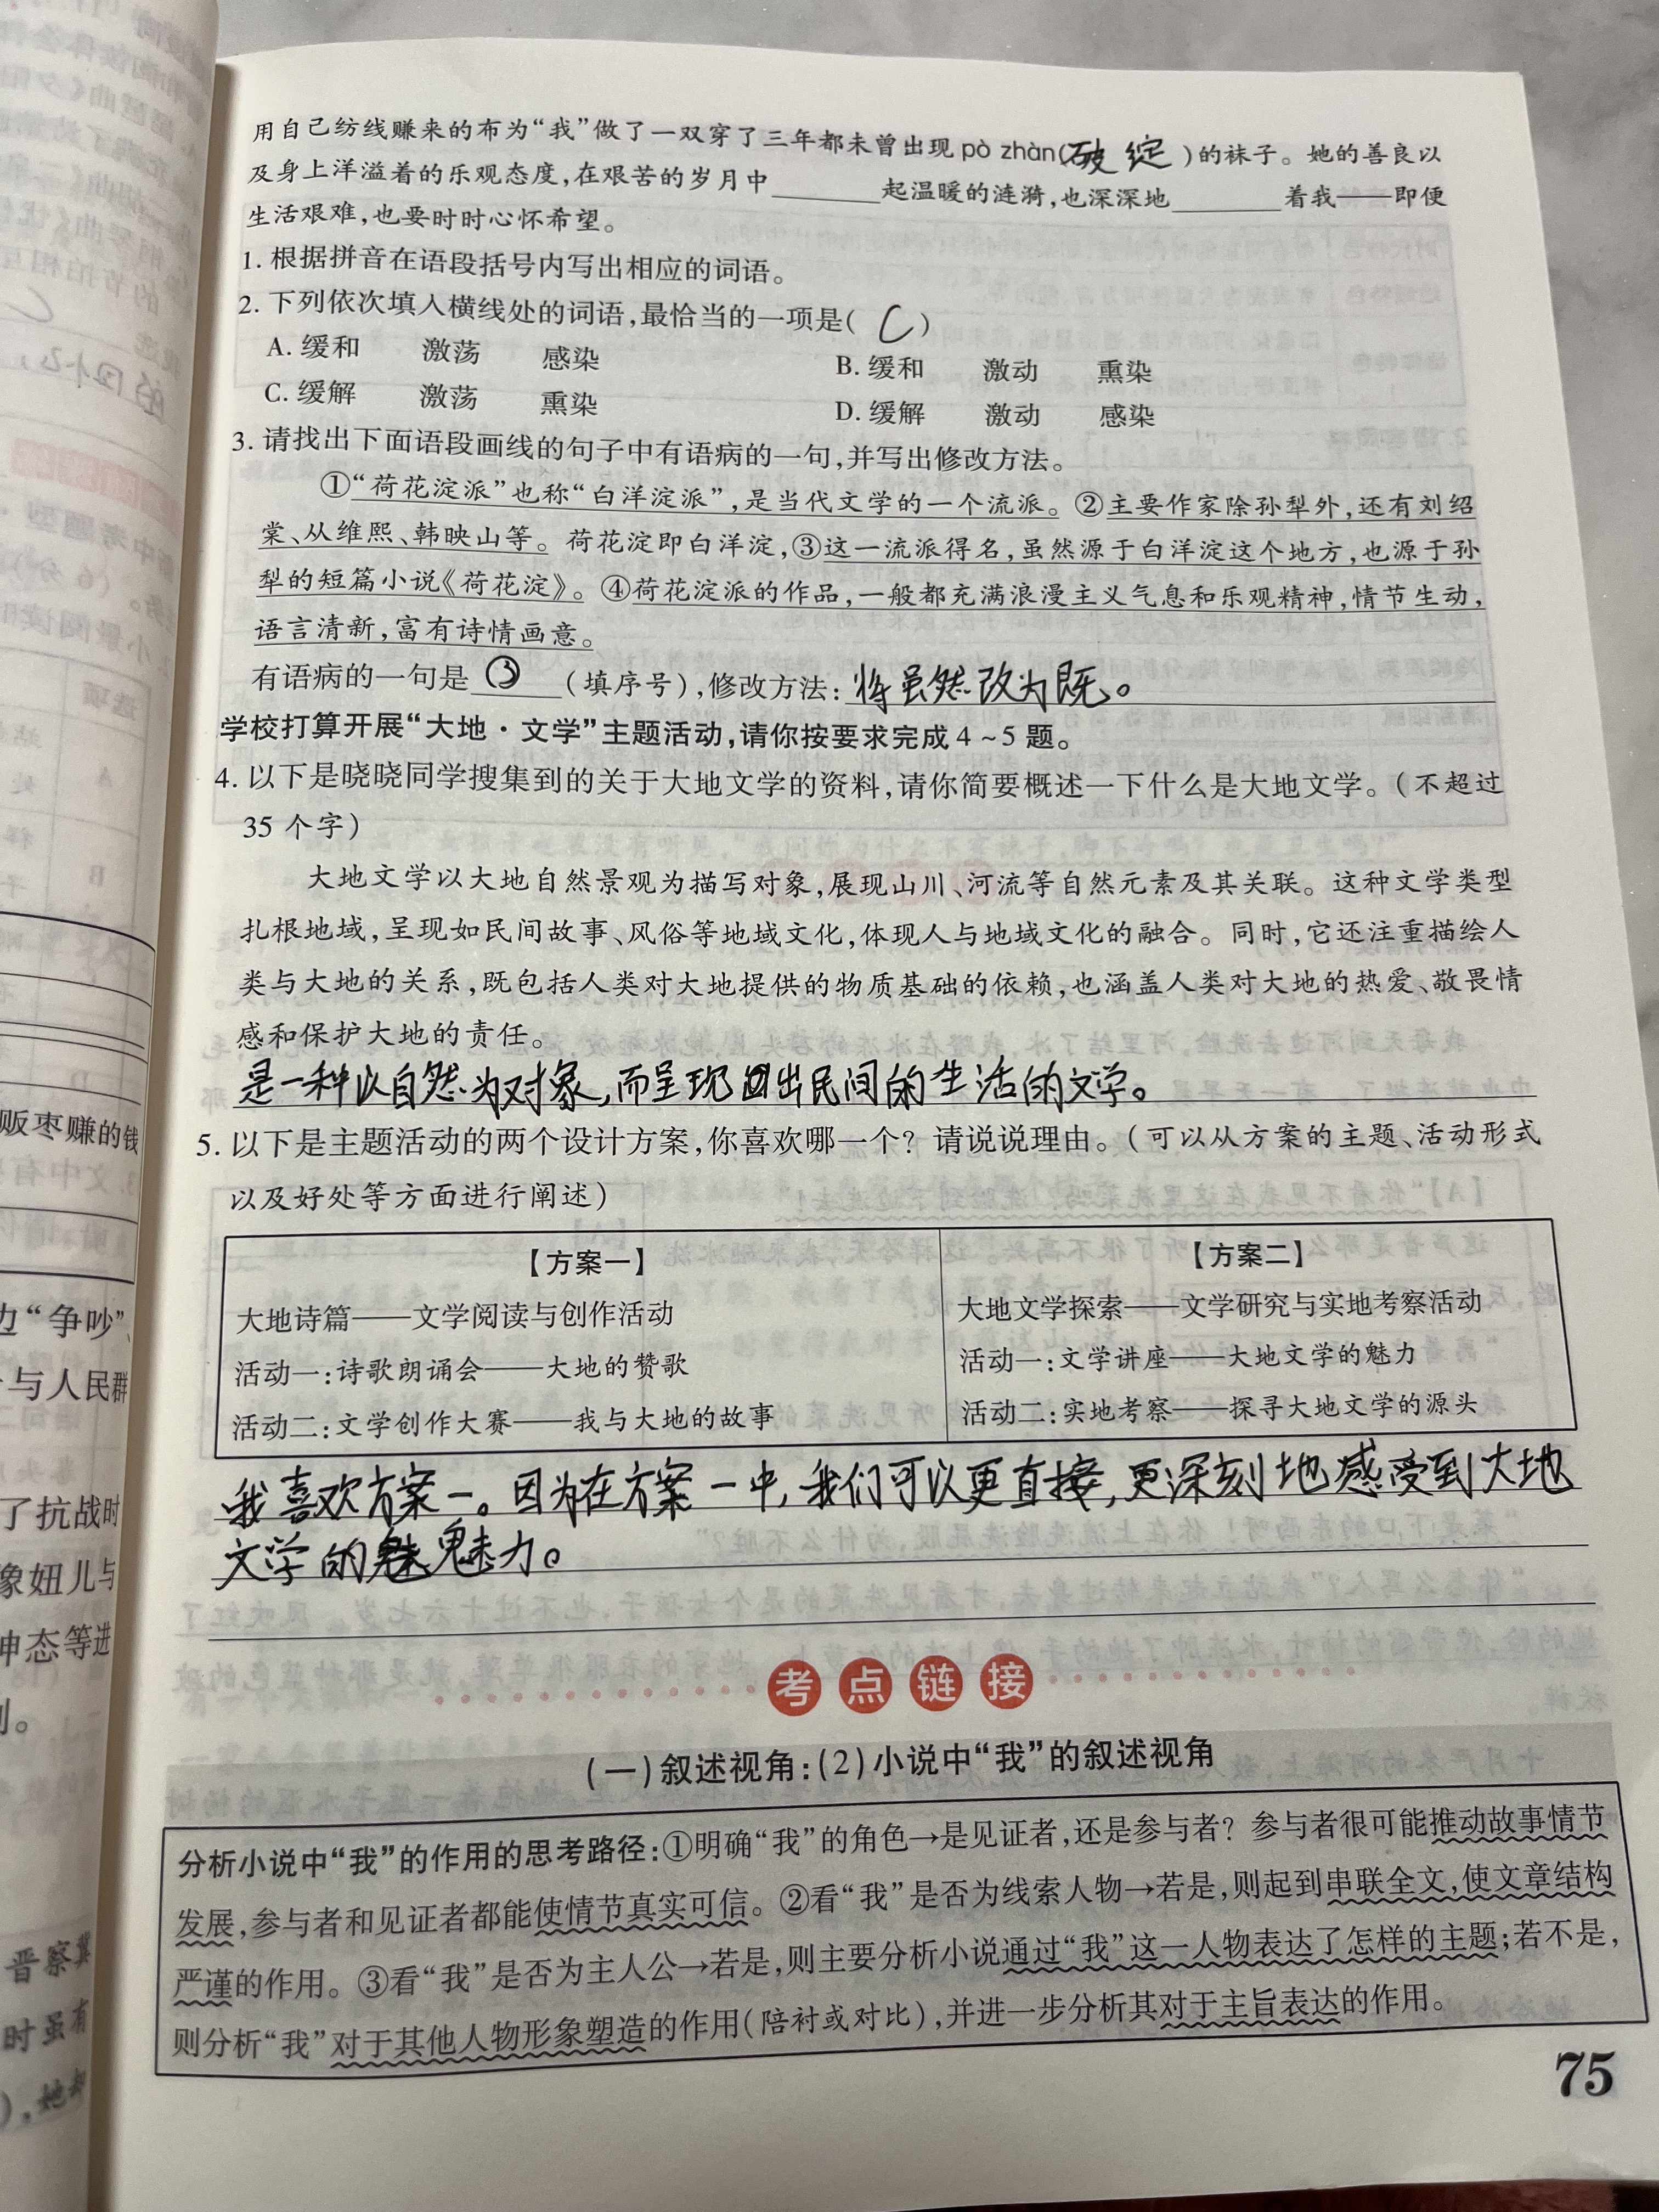 用自己纺线赚来的布为“我”做了一双穿了三年都未曾出现 pò zhàn(破绽)的袜子。她的善良以
及身上洋溢着的乐观态度,在艰苦的岁月中________起温暖的涟漪,也深深地________着我——即便
生活艰难,也要时时心怀希望。
1. 根据拼音在语段括号内写出相应的词语。
2. 下列依次填入横线处的词语,最恰当的一项是( C )
A. 缓和 激荡 感染 B. 缓和 激动 熏染
C. 缓解 激荡 熏染 D. 缓解 激动 感染
3. 请找出下面语段画线的句子中有语病的一句,并写出修改方法。
①“荷花淀派”也称“白洋淀派”,是当代文学的一个流派。②主要作家除孙犁外,还有刘绍
棠、从维熙、韩映山等。荷花淀即白洋淀,③这一流派得名,虽然源于白洋淀这个地方,也源于孙
犁的短篇小说《荷花淀》。④荷花淀派的作品,一般都充满浪漫主义气息和乐观精神,情节生动,
语言清新,富有诗情画意。
有语病的一句是 ③ (填序号),修改方法: 将虽然改为既。
学校打算开展“大地·文学”主题活动,请你按要求完成 4~5 题。
4. 以下是晓晓同学搜集到的关于大地文学的资料,请你简要概述一下什么是大地文学。(不超过
35 个字)
大地文学以大地自然景观为描写对象,展现山川、河流等自然元素及其关联。这种文学类型
扎根地域,呈现如民间故事、风俗等地域文化,体现人与地域文化的融合。同时,它还注重描绘人
类与大地的关系,既包括人类对大地提供的物质基础的依赖,也涵盖人类对大地的热爱、敬畏情
感和保护大地的责任。
是一种以自然为对象,而呈现出民间的生活的文学。
5. 以下是主题活动的两个设计方案,你喜欢哪一个?请说说理由。(可以从方案的主题、活动形式
以及好处等方面进行阐述)
【方案一】
大地诗篇——文学阅读与创作活动
活动一:诗歌朗诵会——大地的赞歌
活动二:文学创作大赛——我与大地的故事
【方案二】
大地文学探索——文学研究与实地考察活动
活动一:文学讲座——大地文学的魅力
活动二:实地考察——探寻大地文学的源头
我喜欢方案一。因为在方案一中,我们可以更直接,更深刻地感受到大地
文学的魅力。
考点链接
(一)叙述视角:(2)小说中“我”的叙述视角
分析小说中“我”的作用的思考路径:①明确“我”的角色→是见证者,还是参与者?参与者很可能推动故事情节
发展,参与者和见证者都能使情节真实可信。②看“我”是否为线索人物→若是,则起到串联全文,使文章结构
严谨的作用。③看“我”是否为主人公→若是,则主要分析小说通过“我”这一人物表达了怎样的主题;若不是,
则分析“我”对于其他人物形象塑造的作用(陪衬或对比),并进一步分析其对于主旨表达的作用。
75
选项
A
B
贩枣赚的钱
边“争吵”、
与人民群
了抗战时
像妞儿与
神态等进
晋察冀
时虽有